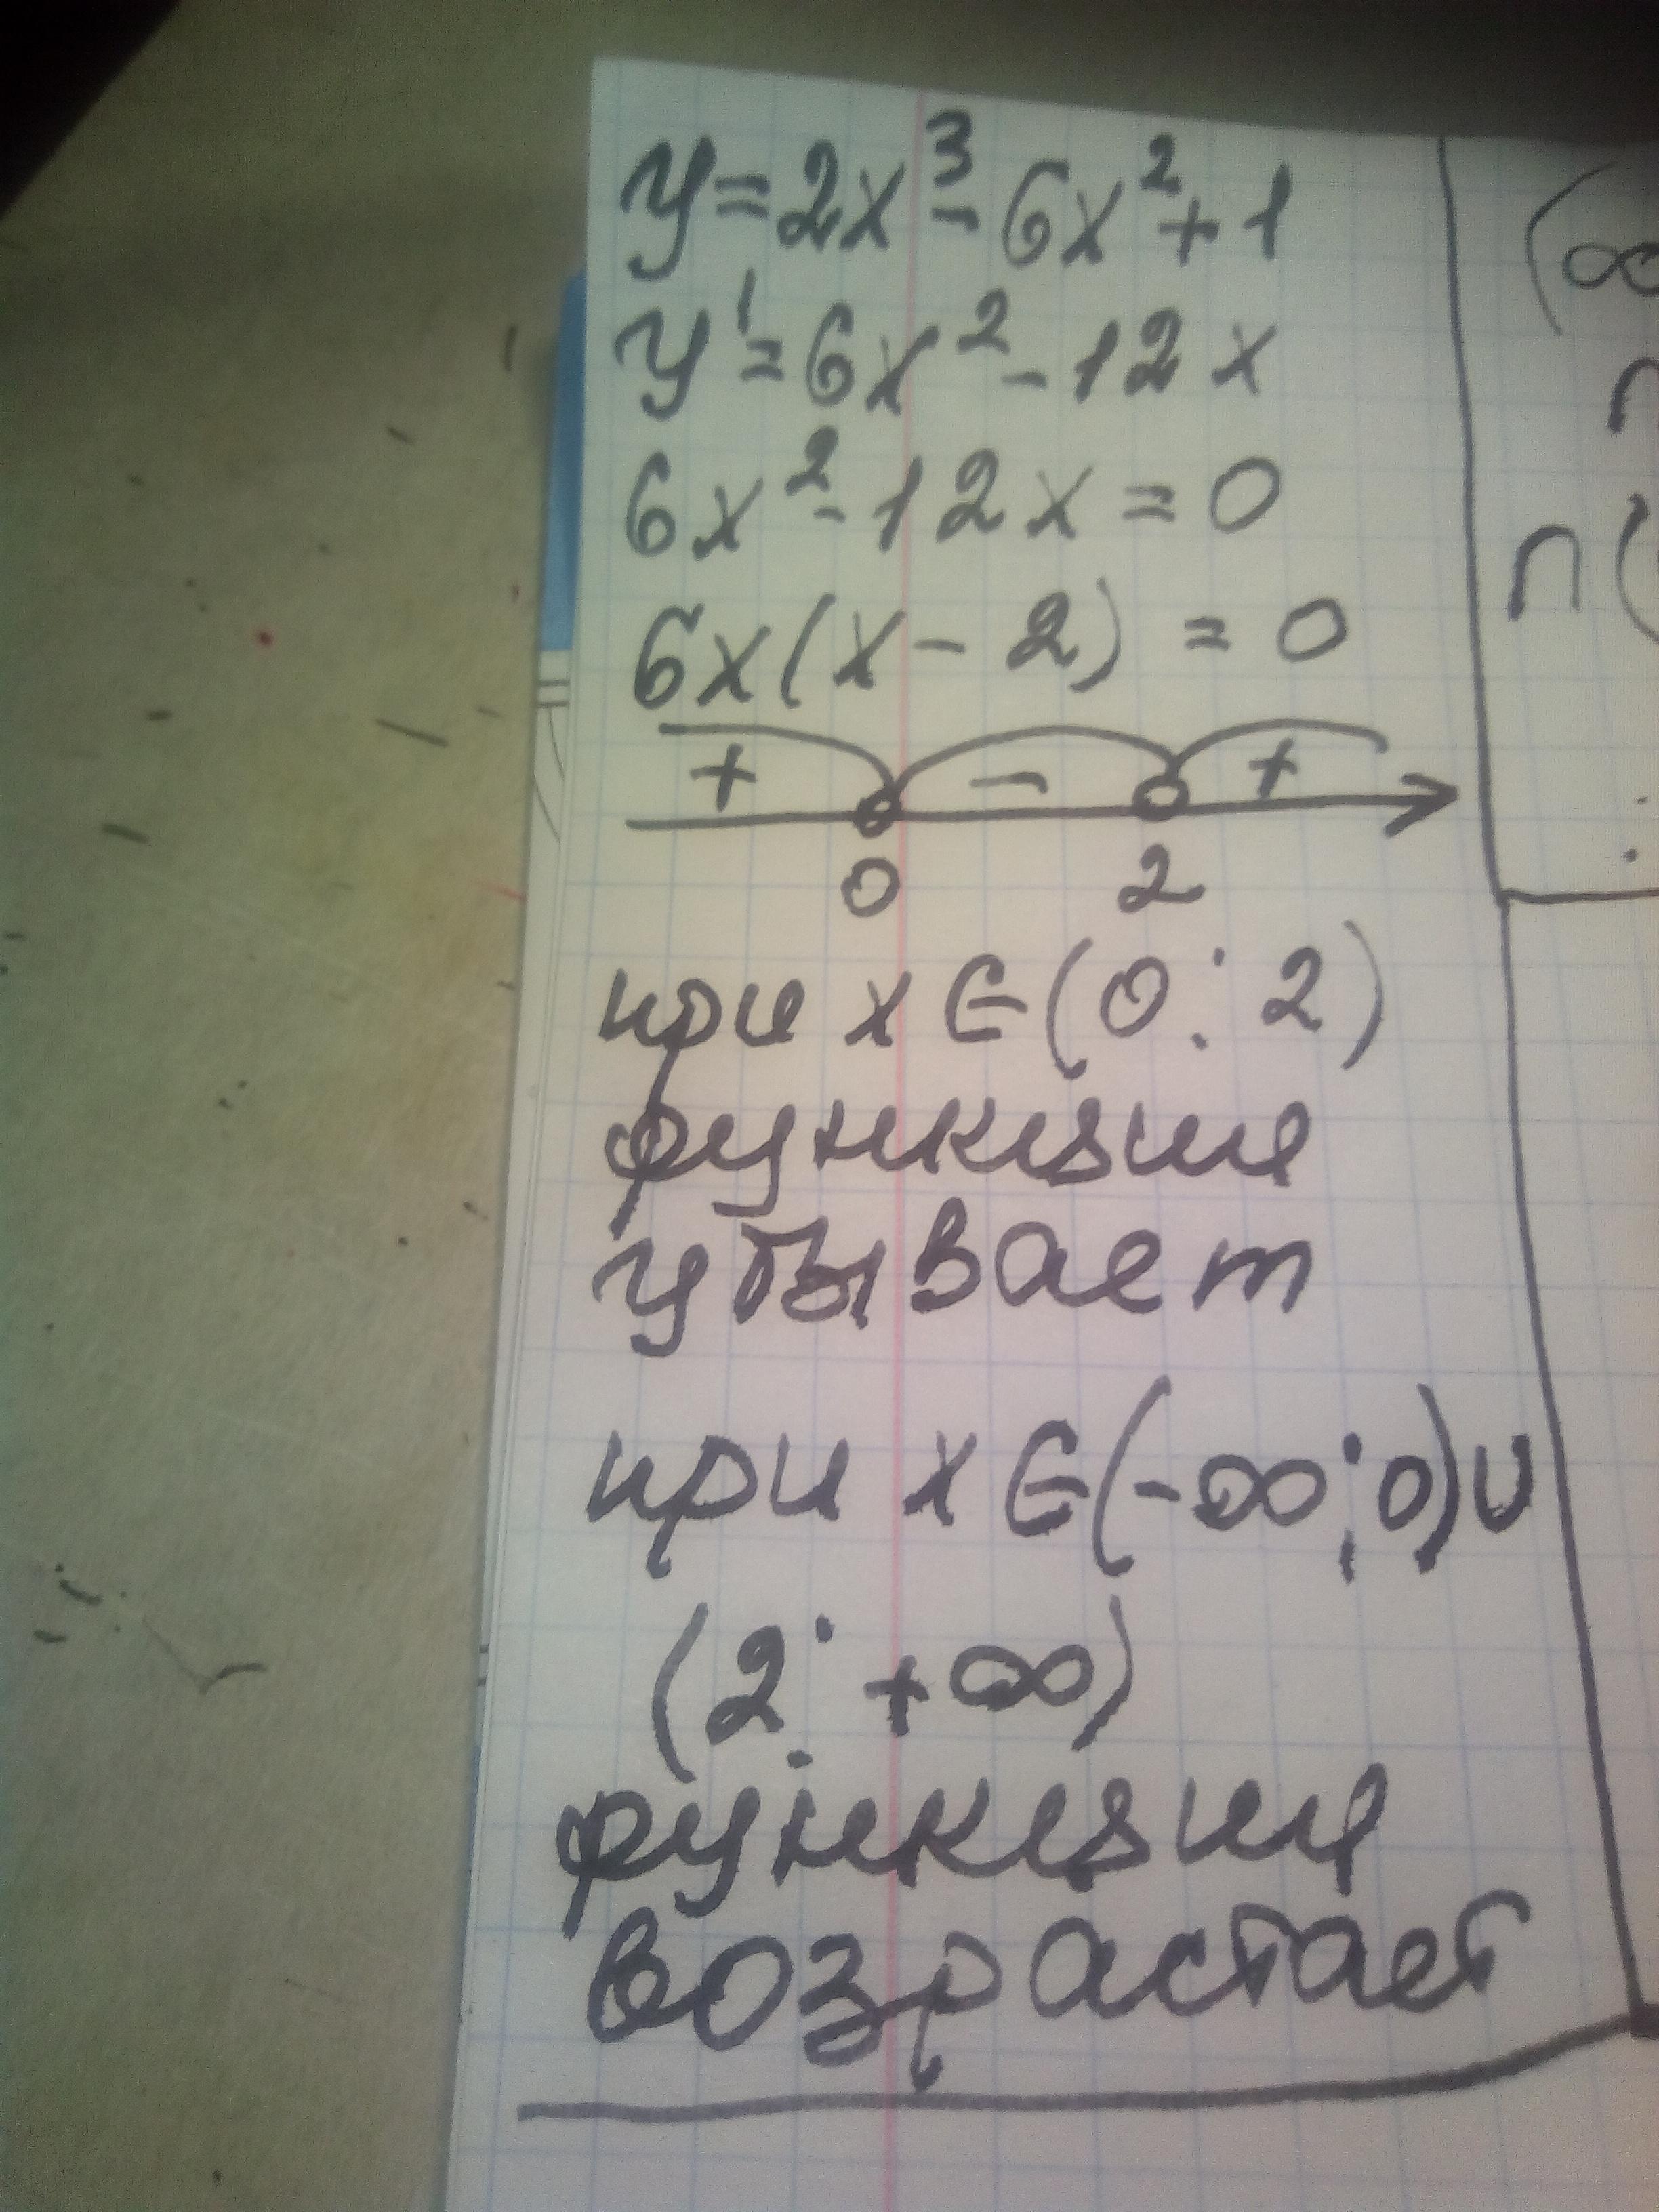 y=2x³-6x²+1
y'=6x²-12x
6x²-12x=0
6x(x-2)=0
+ - +
0 2
при x∈(0;2)
функция
убывает
при x∈(-∞;0)∪
(2;+∞)
функция
возрастает
(∞